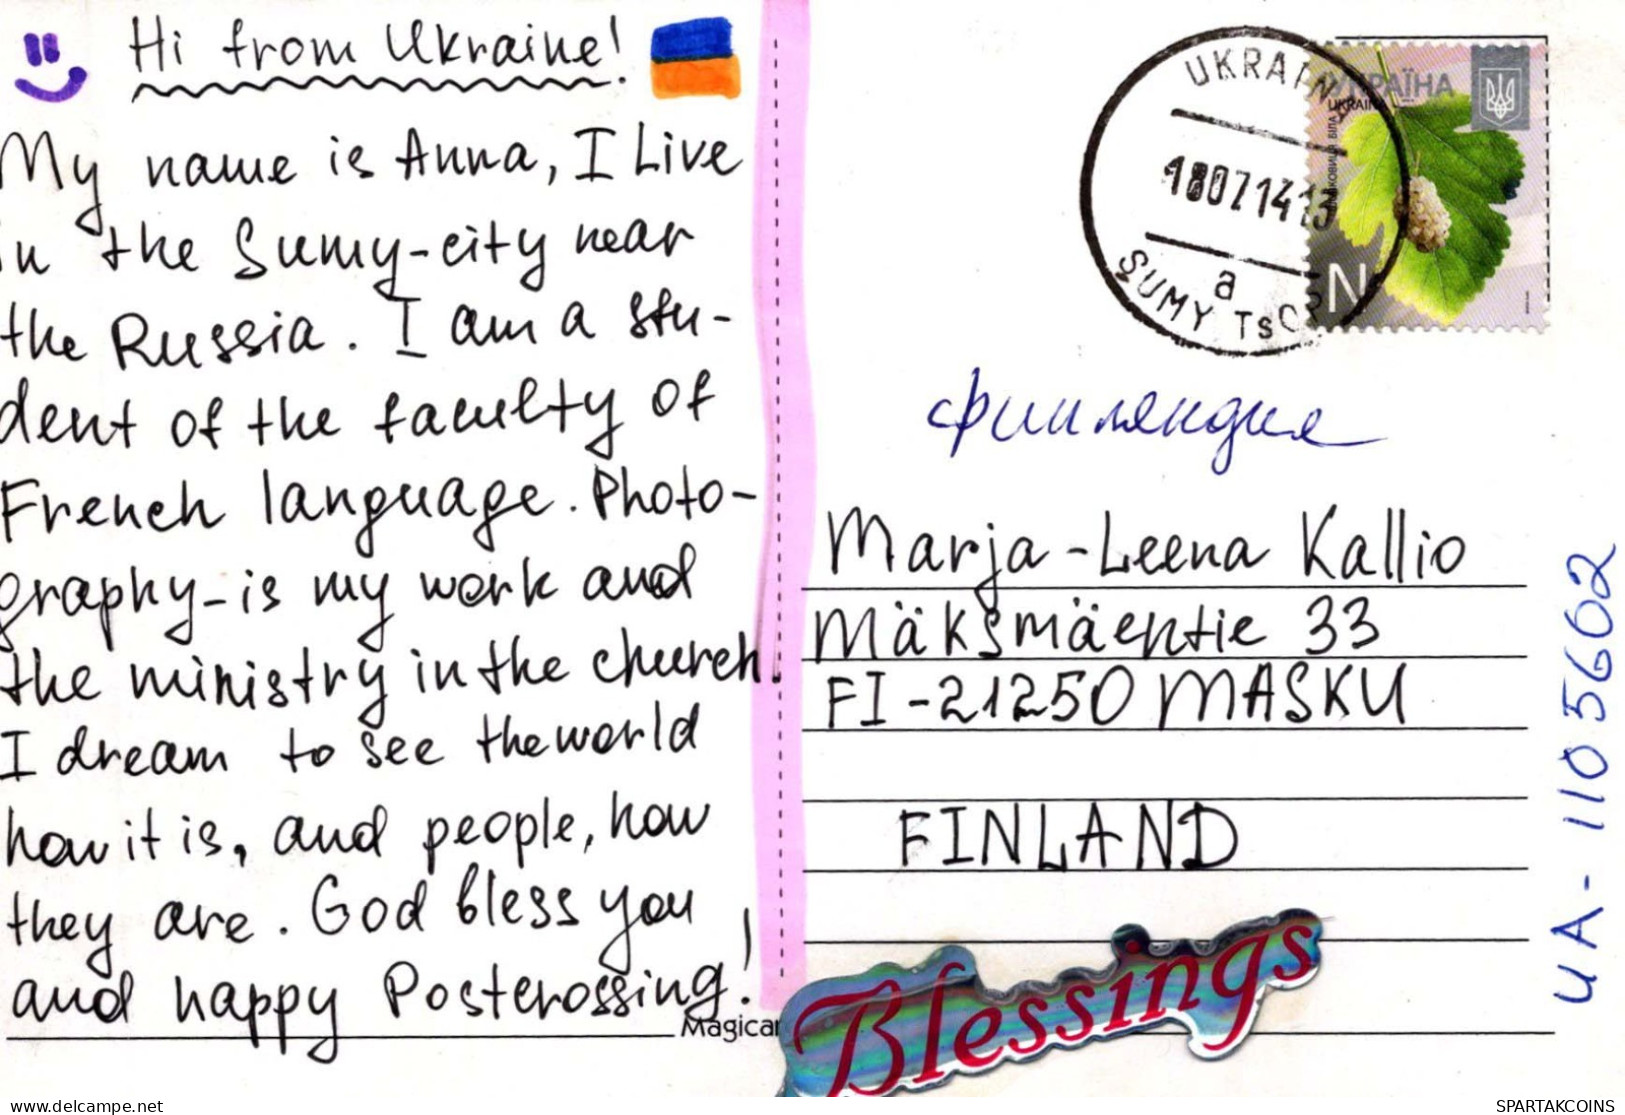 Hi from Ukraine!
My name is Anna, I Live
in the Sumy-city near
the Russia. I am a stu-
dent of the faculty of
French language. Photo-
graphy-is my work and
the ministry in the church.
I dream to see the world
how it is, and people, how
they are. God bless you
and happy Posterossing!
Magicar
UKRAINA
18071413
a
SUMY TsOP
УКРАЇНА
UKRAINA
N
Финляндия
Marja-Leena Kallio
Mäksmäentie 33
FI-21250 MASKU
FINLAND
UA-1105602
Blessings
delcampe.net
SPARTAKCOINS